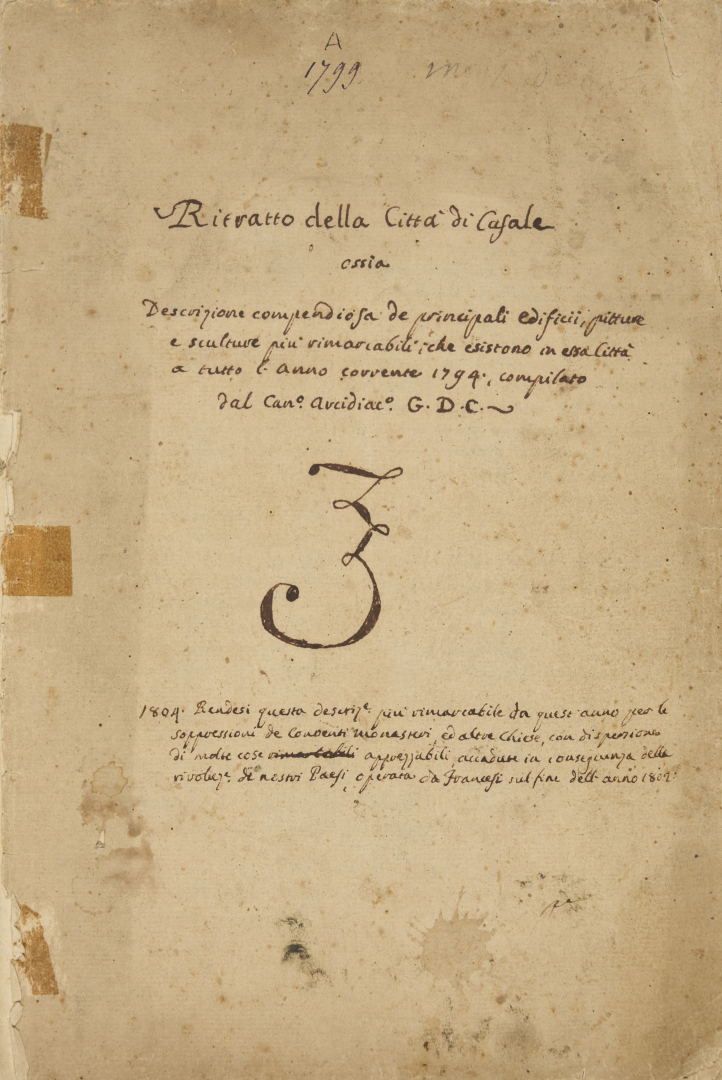 A
1799
Ritratto della Città di Casale
ossia
Descrizione compendiosa de principali edificii, pitture
e sculture più rimarcabili, che esistono in essa Città
a tutto l'anno corrente 1794, compilato
dal Can.º Arcidiac.º G. D. C.
3
1804. Rendesi questa descriz.e più rimarcabile da quest'anno per le
soppressioni de Conventi monasteri, ed altre Chiese, con dispersione
di molte cose rimarcabili apprezzabili, accadute in conseguenza della
rivoluz.e de nostri Paesi, operata da Francesi sul fine dell'anno